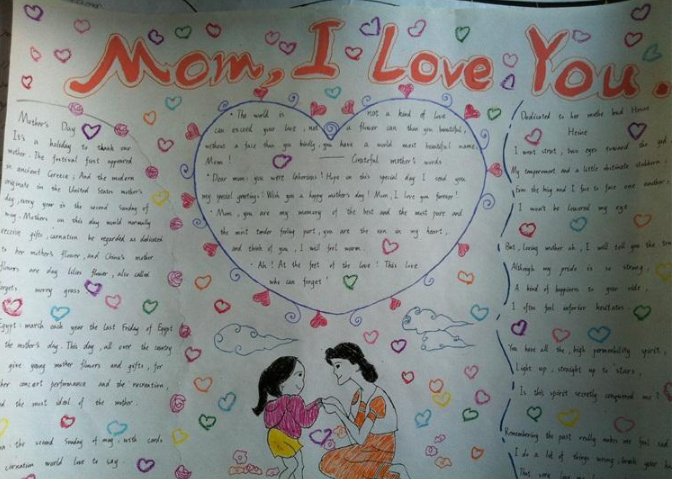 Mom, I Love You.
Mother's Day
It's a holiday to thank our
mother. The festival first appeared
in ancient Greece; And the modern
originate in the United States mother's
day, every year is the second Sunday of
may. Mothers on this day would normally
receive gifts, carnation be regarded as dedicated
to her mother's flower, and China's mother
flowers are day lilies flower, also called
worry grass
Egypt: march each year the last Friday of Egypt
the mother's day. This day, all over the country
give young mother flowers and gifts, for
her concert performance and the recreation,
the most ideal of the mother.
the second Sunday of may, with cards
carnation world love to say
"The world is not a kind of love
can exceed your love, not a flower can than you beautiful,
without a face than you kindly, you have a world most beautiful name
Mom!
Grateful mother's words
"Dear mom: you were laborious! Hope on this special day I send you
my special greeting: Wish you a happy mother's day! Mom, I love you forever!
"Mom, you are my memory of the best and the most pure and
the most tender feeling part, you are the sun in my heart,
and think of you, I will feel warm.
"Ah! At the feet of the love! This love
who can forget!
Dedicated to her mothe bud Heine
Heine
I went strut, two eyes toward the god
My temperament and a little obstinate stubborn,
the king and I face to face one another,
I won't be lowered my eye
But, loving mother ah, I will tell you the
Although my pride is so strong,
A kind of happiness to your side,
I often feel inferior hesitates
You have all the, high permeability spirit,
Light up, straight up to stars,
Is this spirit secretly conquered me?
Remembering the past really makes me feel
I do a lot of things wrong, break your